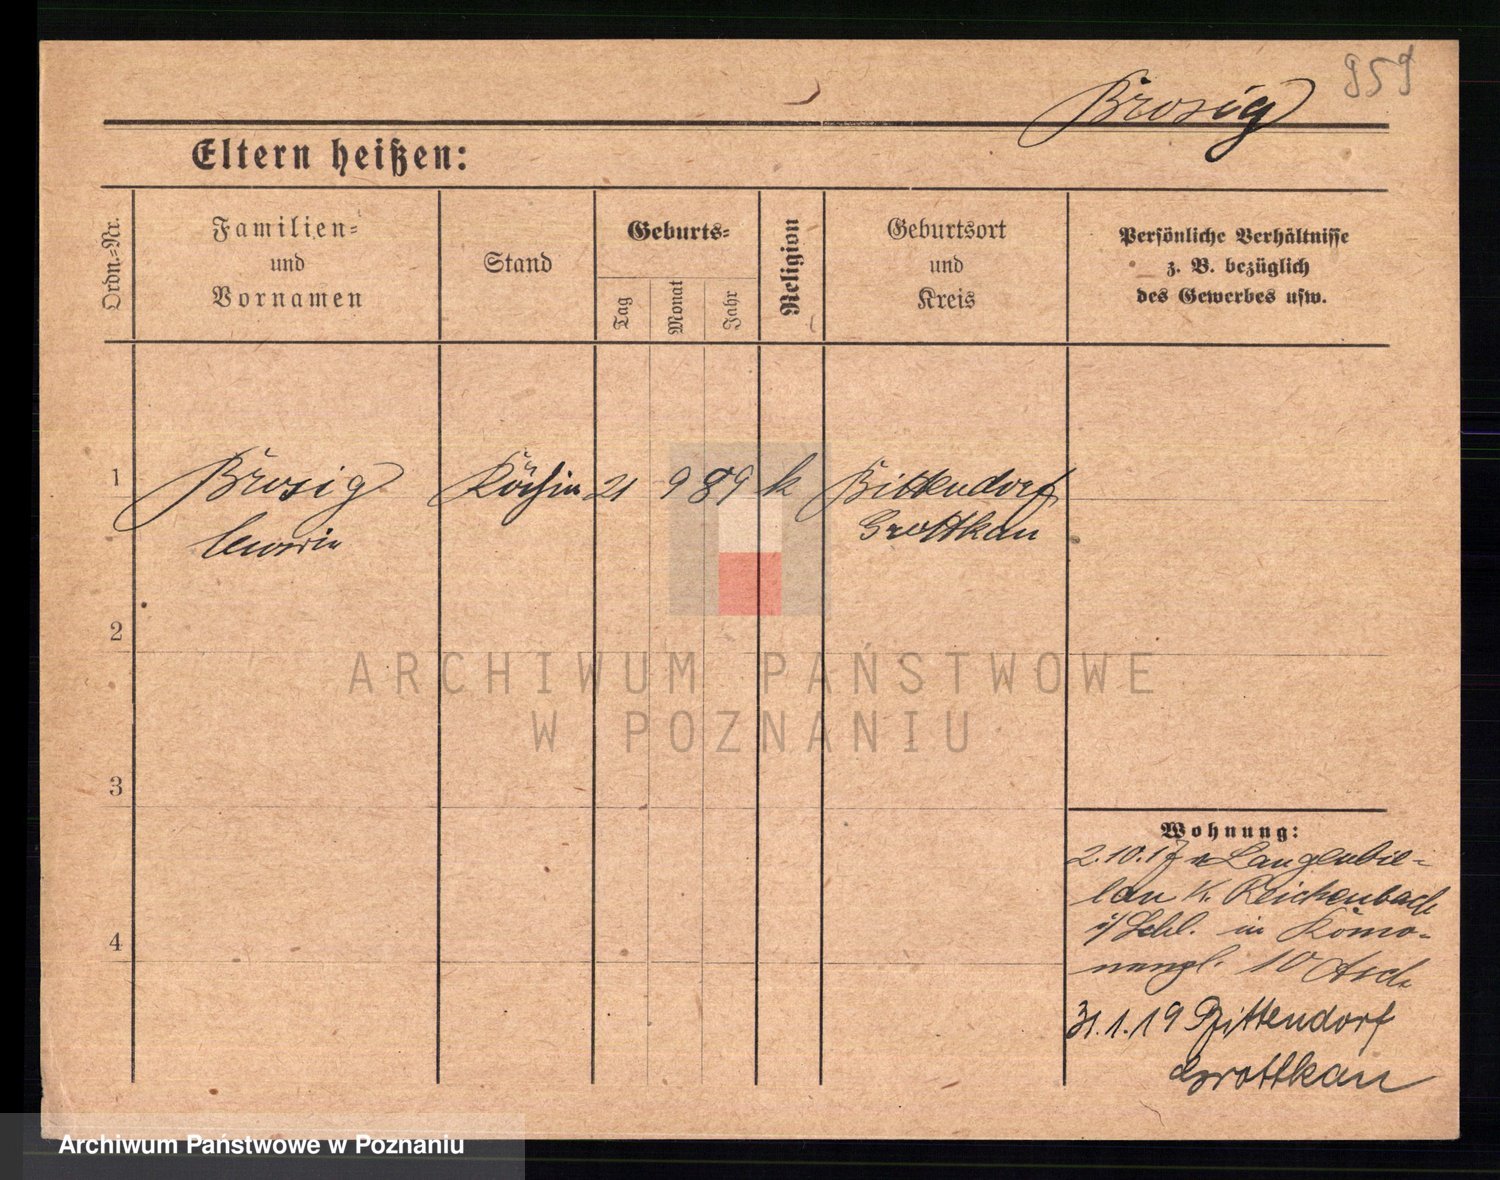 959
Brosig
Eltern heißen:
Ordn.-Nr.
Familien-
und
Vornamen
Stand
Geburts-
Tag
Monat
Jahr
Religion
Geburtsort
und
Kreis
Persönliche Verhältnisse
z. B. bezüglich
des Gewerbes usw.
1 Brosig Köchin 21 9 89 k Bittendorf
Grottkau
2
ARCHIWUM PAŃSTWOWE
W POZNANIU
3
Wohnung:
2.10.17 v Langenbie-
lau K. Reichenbach
i/Schl. in
4
10
31.1.19 Bittendorf
Grottkau
Archiwum Państwowe w Poznaniu